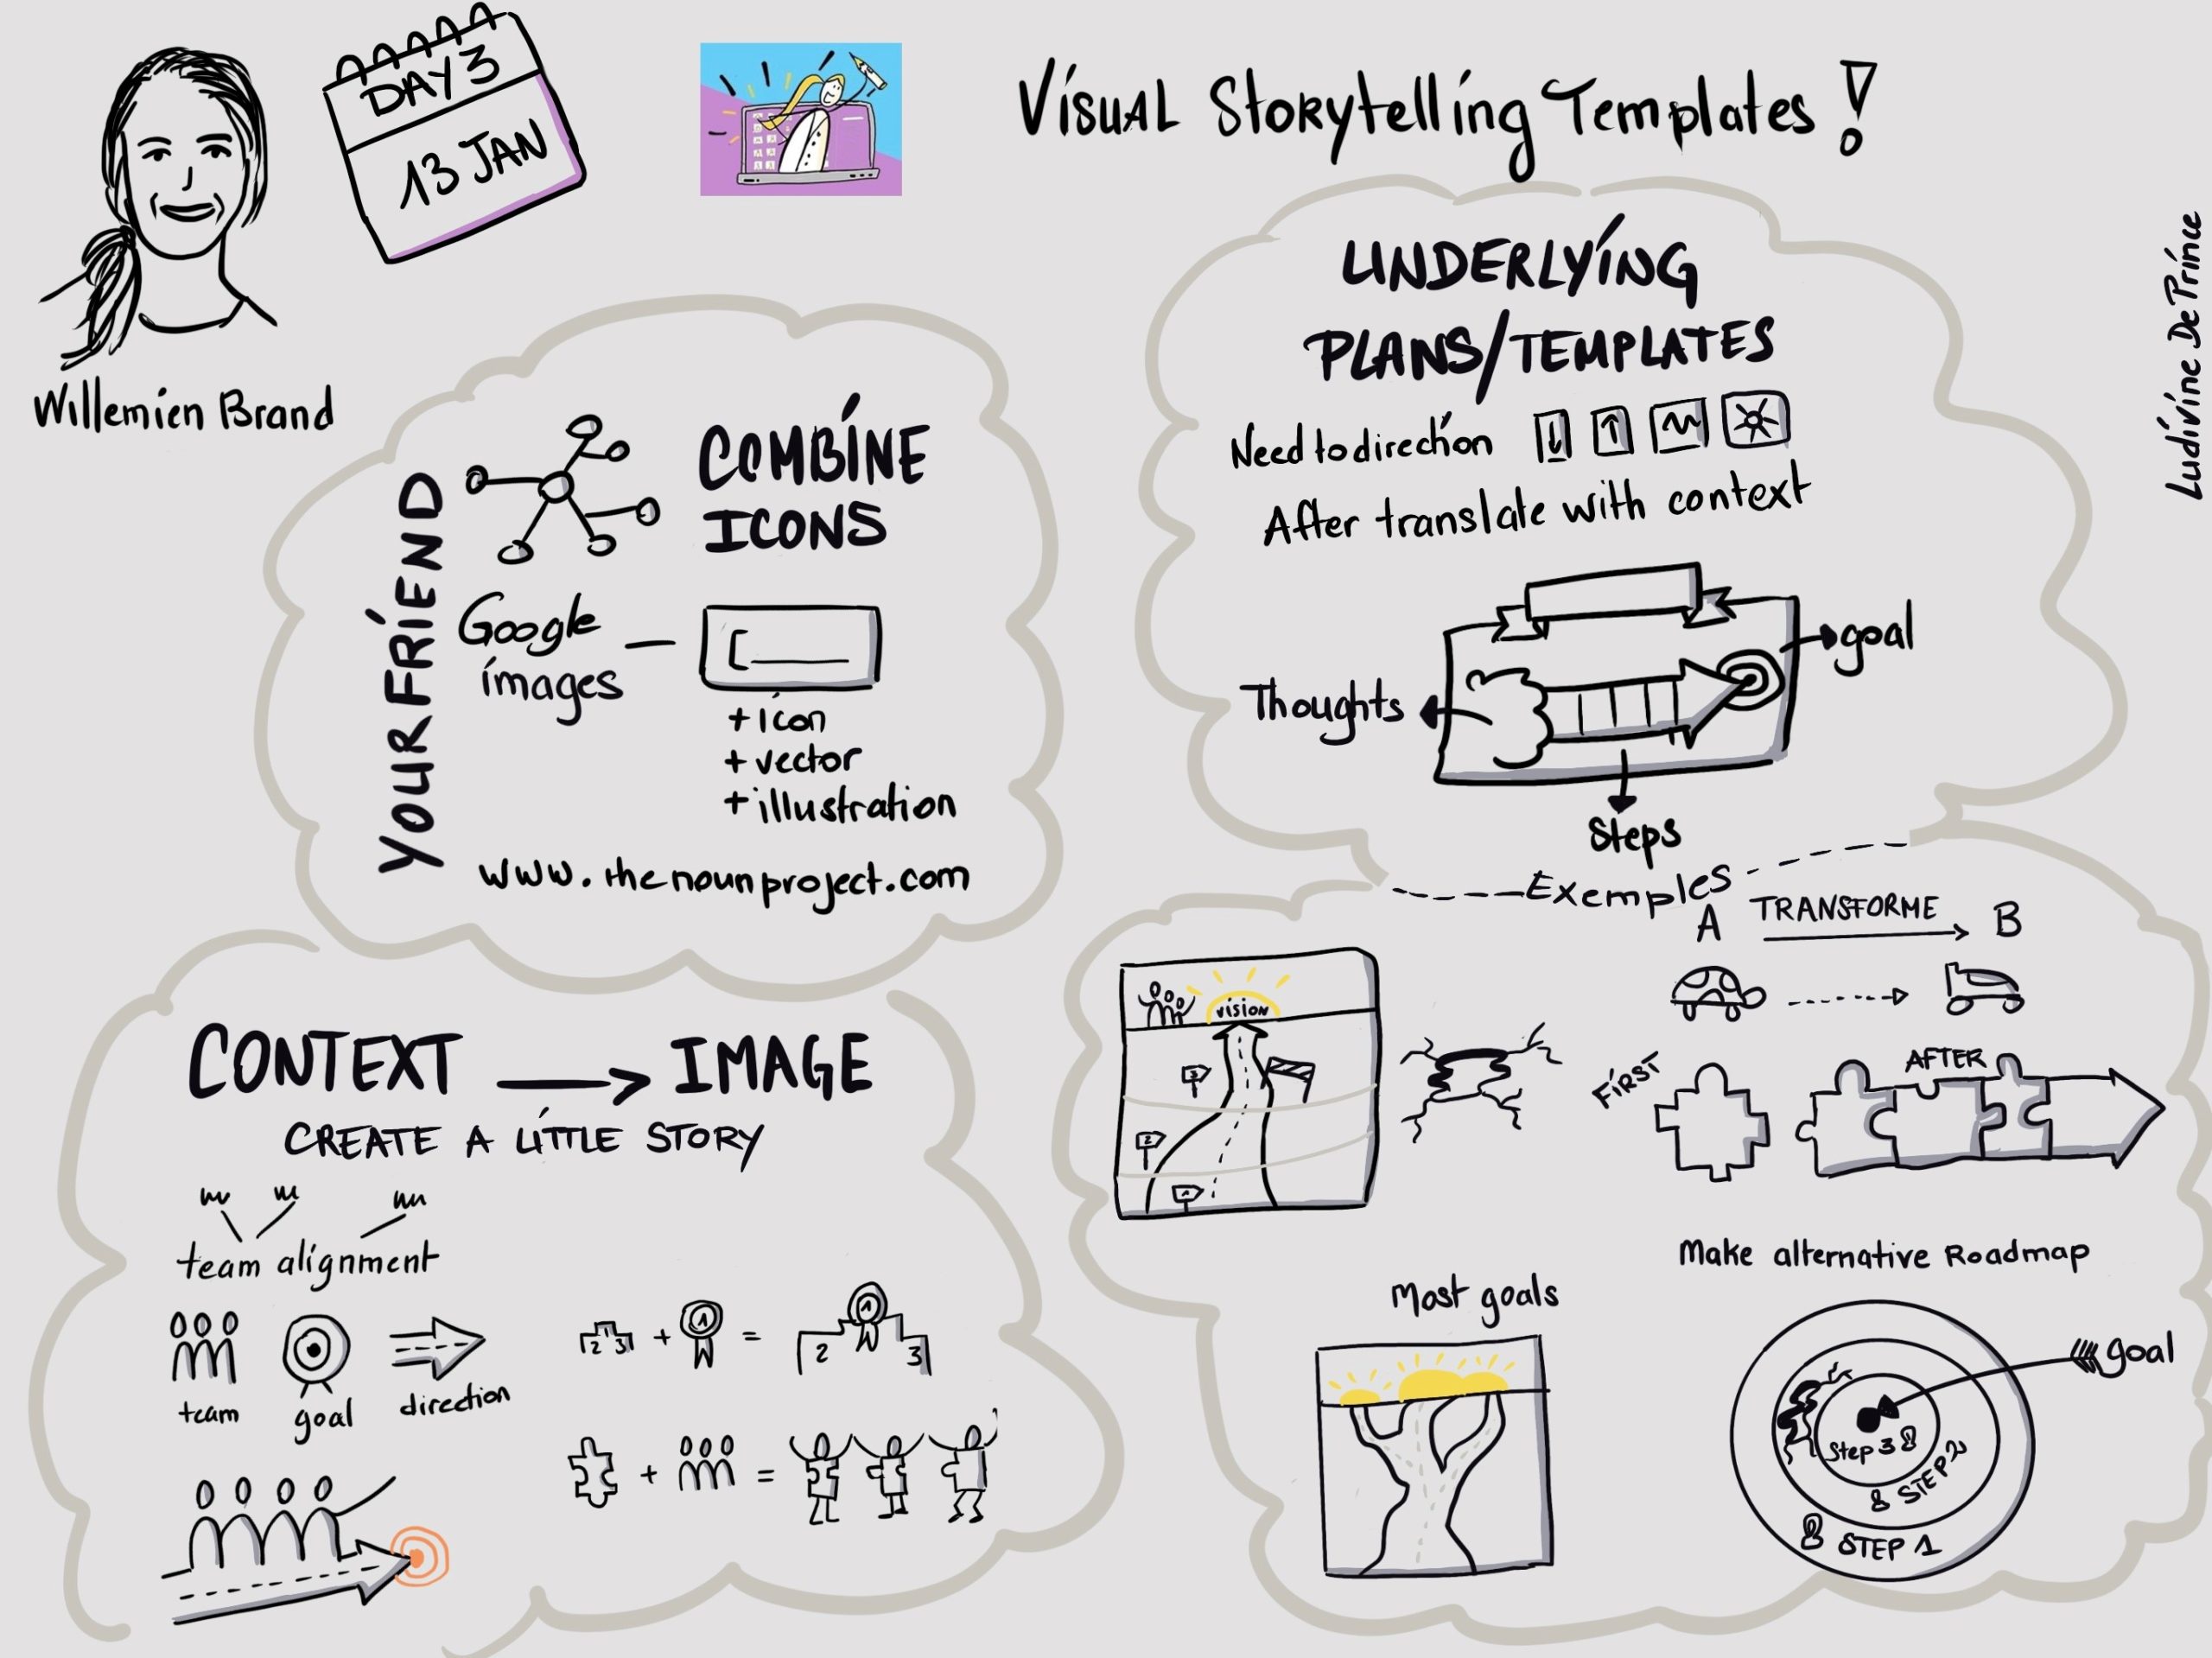 DAY 3
13 JAN
Willemien Brand
Visual Storytelling Templates!
Ludivine De Prince
YOUR FRIEND
COMBINE
ICONS
Google
images
[
+ icon
+ vector
+ illustration
www.thenounproject.com
UNDERLYING
PLANS/TEMPLATES
Need to direction
After translate with context
goal
Thoughts
Steps
Exemples
A TRANSFORME B
vision
3
2
1
FIRST
AFTER
Most goals
Make alternative Roadmap
goal
Step 3
STEP 2
STEP 1
CONTEXT → IMAGE
CREATE A LITTLE STORY
team alignment
team
goal
direction
1
2 3 + 1 = 1
2 3
+ =